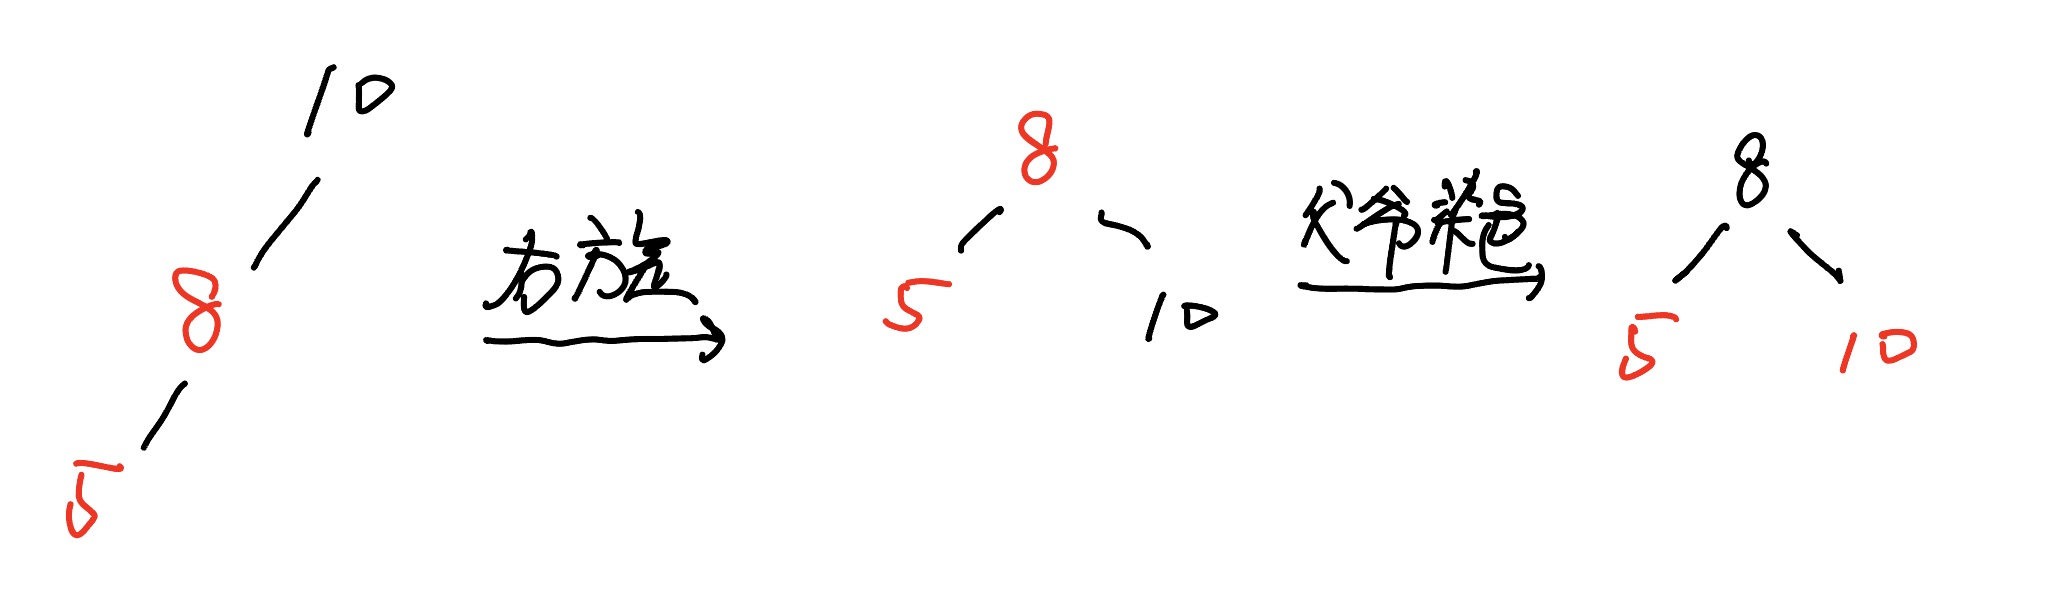 10
8
5
右旋
8
5
10
父爷染色
8
5
10